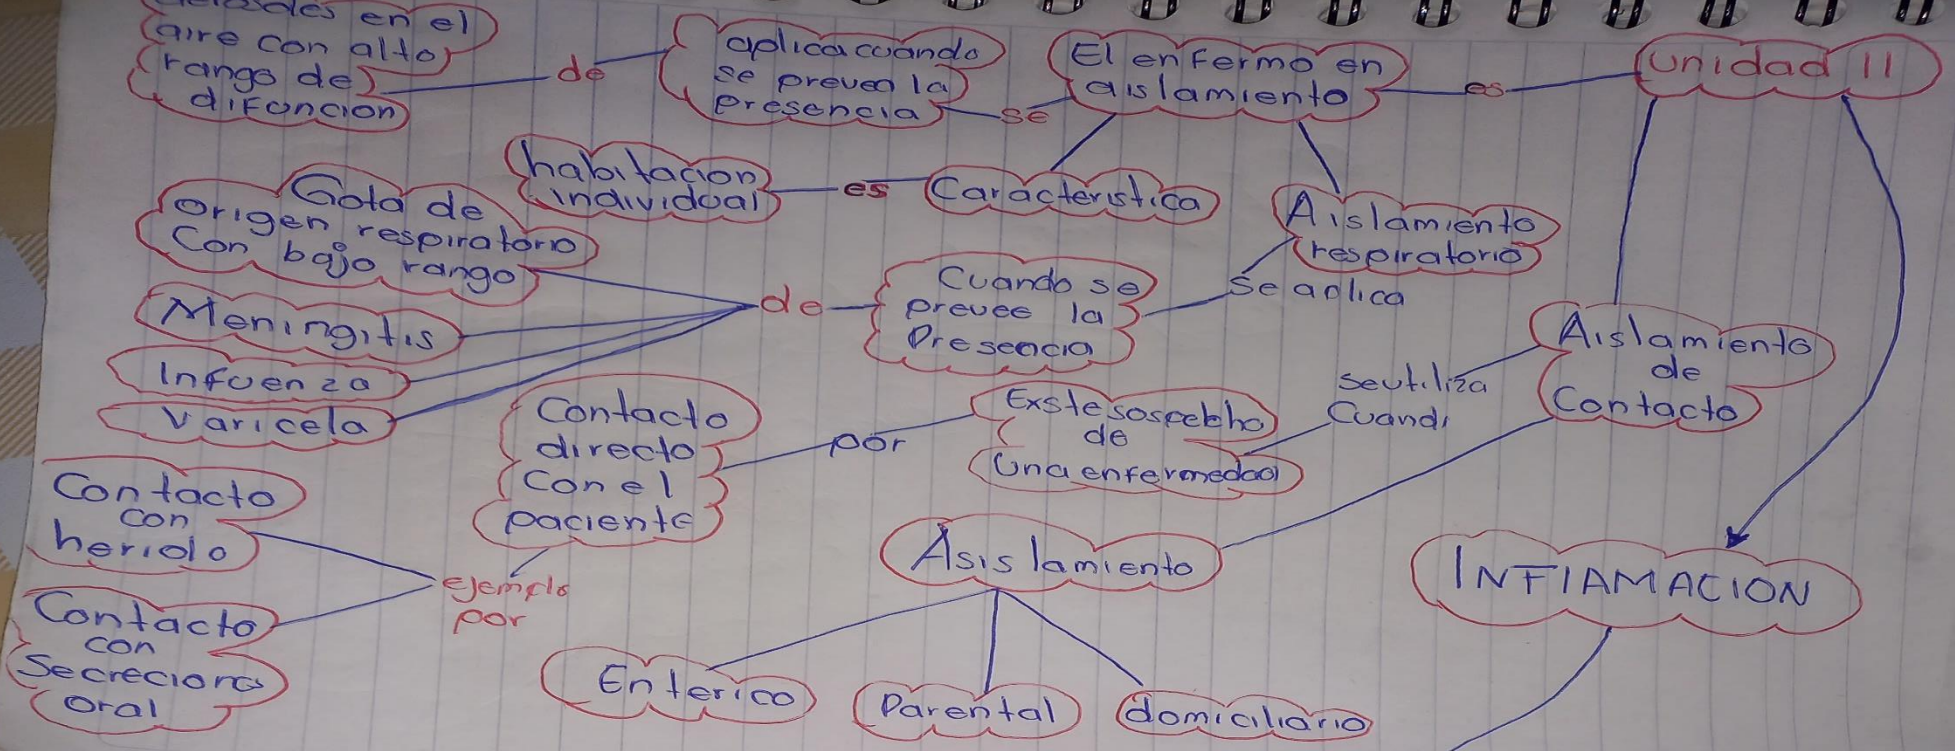 en el
aire con alto
rango de
difuncion
de
aplica cuando
se preveo la
presencia
se
El enfermo en
aislamiento
es
Unidad II
habitacion
individual
es
Caracteristica
Aislamiento
respiratorio
Se aplica
Gota de
origen respiratorio
Con bajo rango
Meningitis
Infuenza
Varicela
de
Cuando se
prevee la
Presencia
Aislamiento
de
Contacto
se utiliza
Cuand
Exste sospecho
de
Una enfermedad
por
Contacto
directo
Con el
paciente
ejemplo
por
Contacto
con
herido
Contacto
con
Secreciono
oral
Asislamiento
Enterico
Parental
domiciliario
INFIAMACION